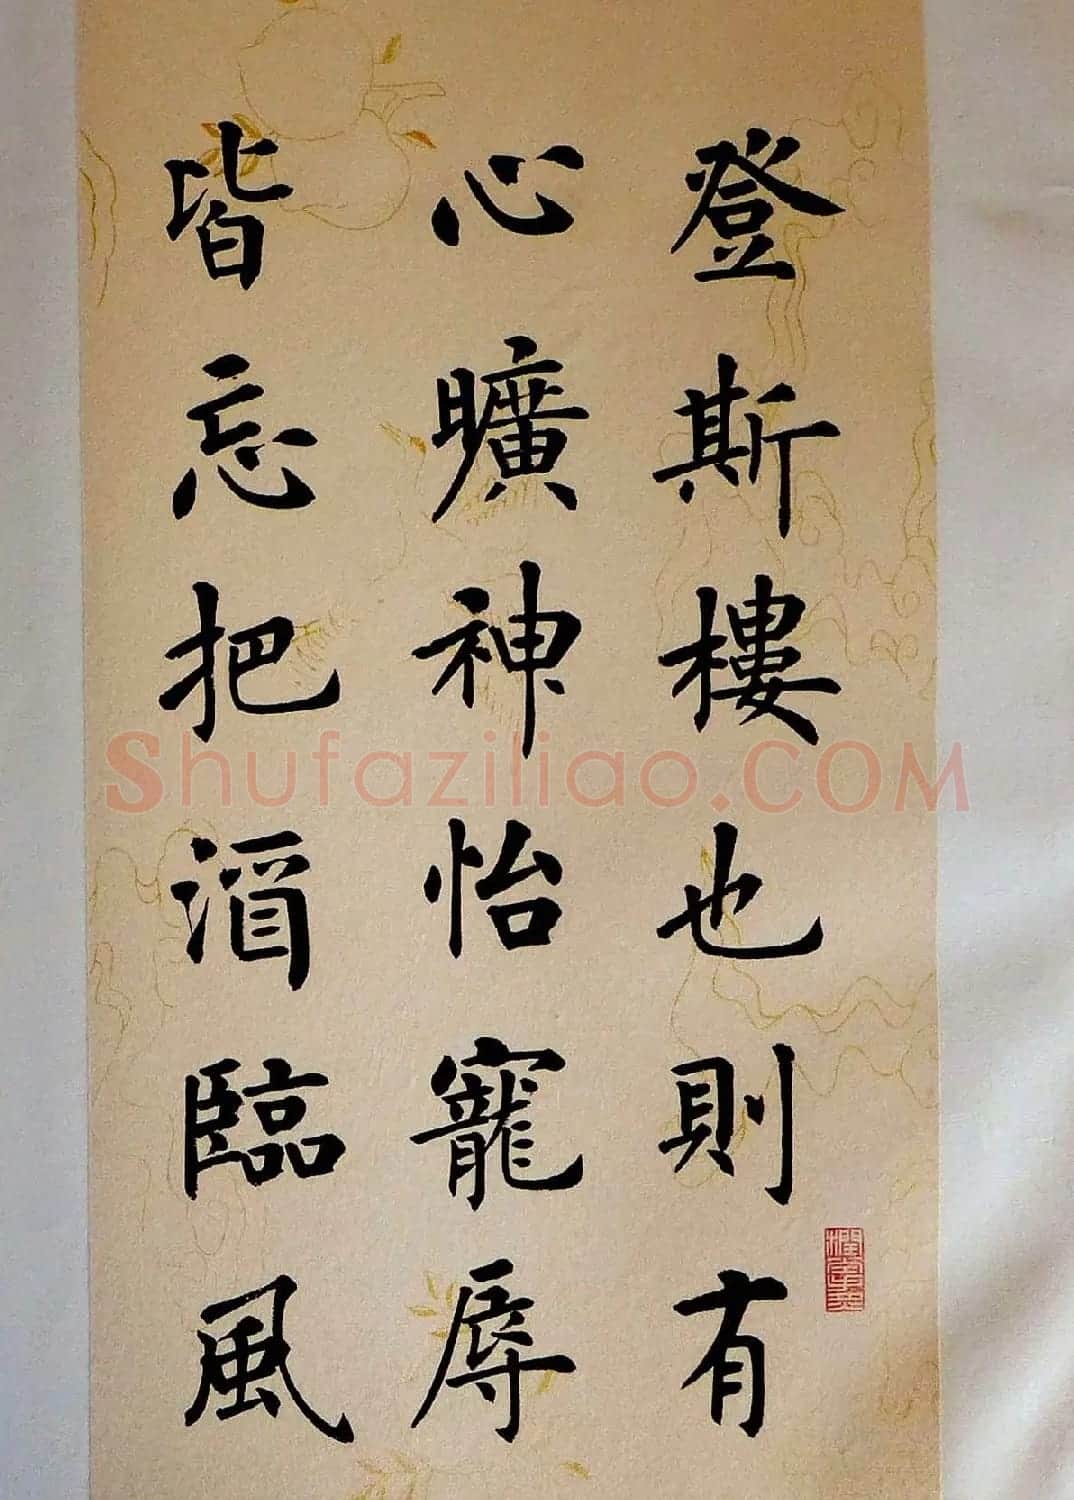 登斯樓也則有
心曠神怡寵辱
皆忘把酒臨風
Shufaziliao.COM